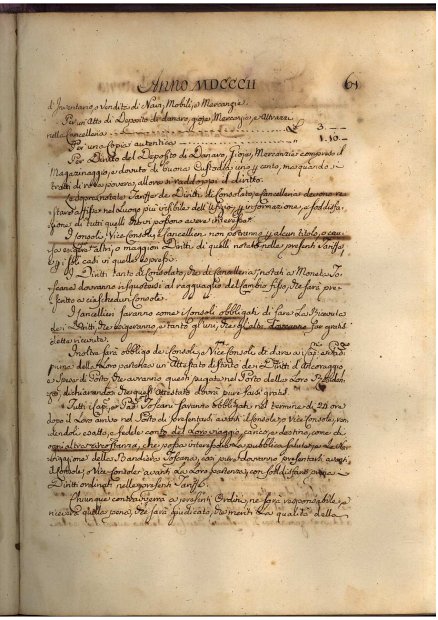 Anno MDCCCII 61
d'Inventario, e Vendite di Navi, Mobili, e Mercanzie.
Per un'Atto di Deposito di danaro, gioje, Mercanzie, e Attrazzi
nella Cancelleria £ 3. — —
Per una Copia autentica 1. 10. —
Per Diritto del Deposito di Danaro, Gioje, Mercanzie compreso il
Magazzinaggio, e dovuto di buona Custodia uno p cento, ma quando si
tratti di robe povere, allora si raddoppi il diritto.
Le sopranotate Tariffe de Diritti di Consolato, e Cancelleria devono re
stare affisse nel Luogo più visibile dell'Ufizio p informazione, e soddisfa
zione di tutti quelli che vi possono avere interesse.
I Consoli, Vice Consoli, e Cancellieri non potranno p alcun titolo, o cau
sa esigere altri, o maggiori Diritti di quelli notati nelle presenti Tariffe,
e p i soli casi in quelle espressi.
I Diritti tanto di Consolato, che di Cancelleria, notati a Moneta To
scana dovranno riscuotersi al ragguaglio del Cambio fisso, che sarà pre
scritto a ciaschedun Console.
I Cancellieri saranno come i Consoli obbligati di fare la Ricevuta
dei Diritti, che esigeranno, e tanto gl'uni, che gl'altri dovranno far gratis
detta ricevuta.
Inoltre sarà obbligo de Consoli, e Vice Consoli di dare a i Cap.ni prima
della Loro partenza un Attestato distinto dei Diritti d'Ancoraggio,
e Spese di Porto, che avranno questi pagate nel Porto della Loro Residen
za, dichiarando che quest'Attestato dovrà pure farsi gratis.
Tutti i Cap.ni e Pad.ni Toscani saranno obbligati nel termine di 24 ore
dopo il Loro arrivo nel Porto di presentarsi avanti il Console, o Vice Console, ren
dendoli esatto, e fedele conto del Loro viaggio, carico, e destino, come di
ogni altra circostanza, che possa interessare la pubblica Salute, e la Na
vigazione della Bandiera Toscana, così pure dovranno presentarsi avanti
il Console, o Vice Console avanti la Loro partenza, con soddisfare prima i
Diritti ordinati nelle presenti Tariffe.
Chiunque contravverrà a presenti Ordini, ne sarà responsabile, e
riceverà quella pena, che sarà giudicato, che meriti la qualità della